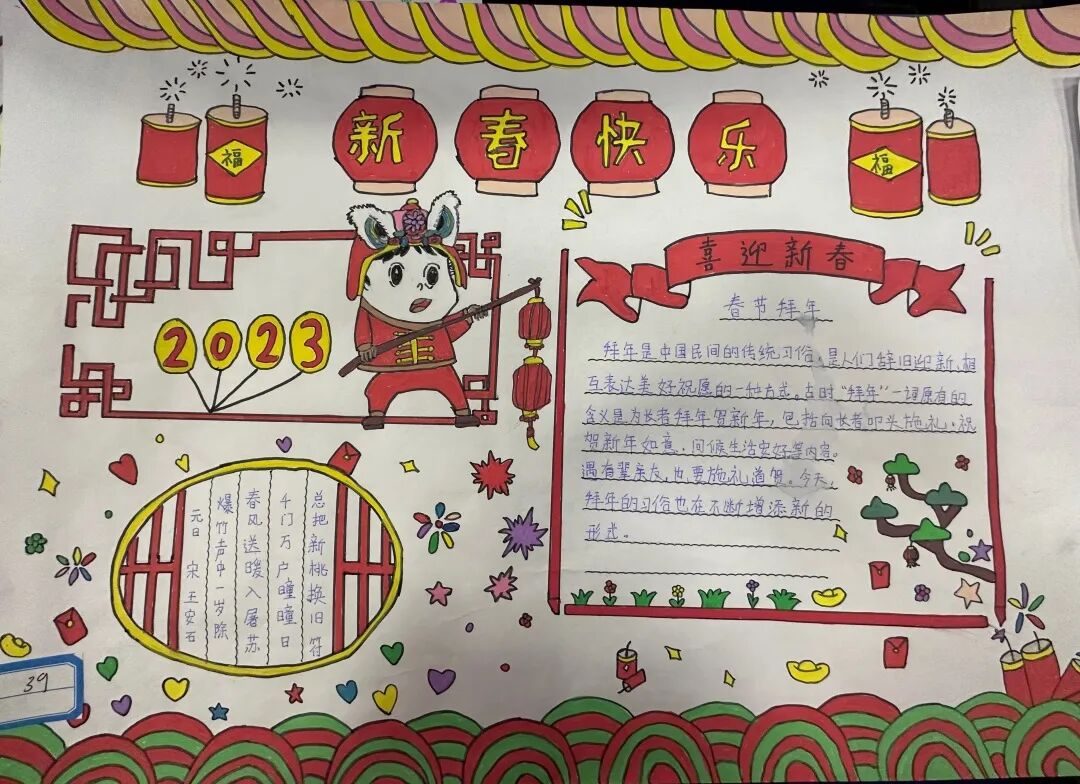 新春快乐
福
福
2023
喜迎新春
春节拜年
拜年是中国民间的传统习俗,是人们辞旧迎新、相
互表达美好祝愿的一种方式。古时“拜年”一词原有的
含义是为长者拜年贺新年,包括向长者叩头施礼、祝
贺新年如意、问候生活安好等内容。
遇有辈亲友,也要施礼道贺。今天,
拜年的习俗也在不断增添新的
形式。
元日 宋 王安石
爆竹声中一岁除
春风送暖入屠苏
千门万户曈曈日
总把新桃换旧符
39